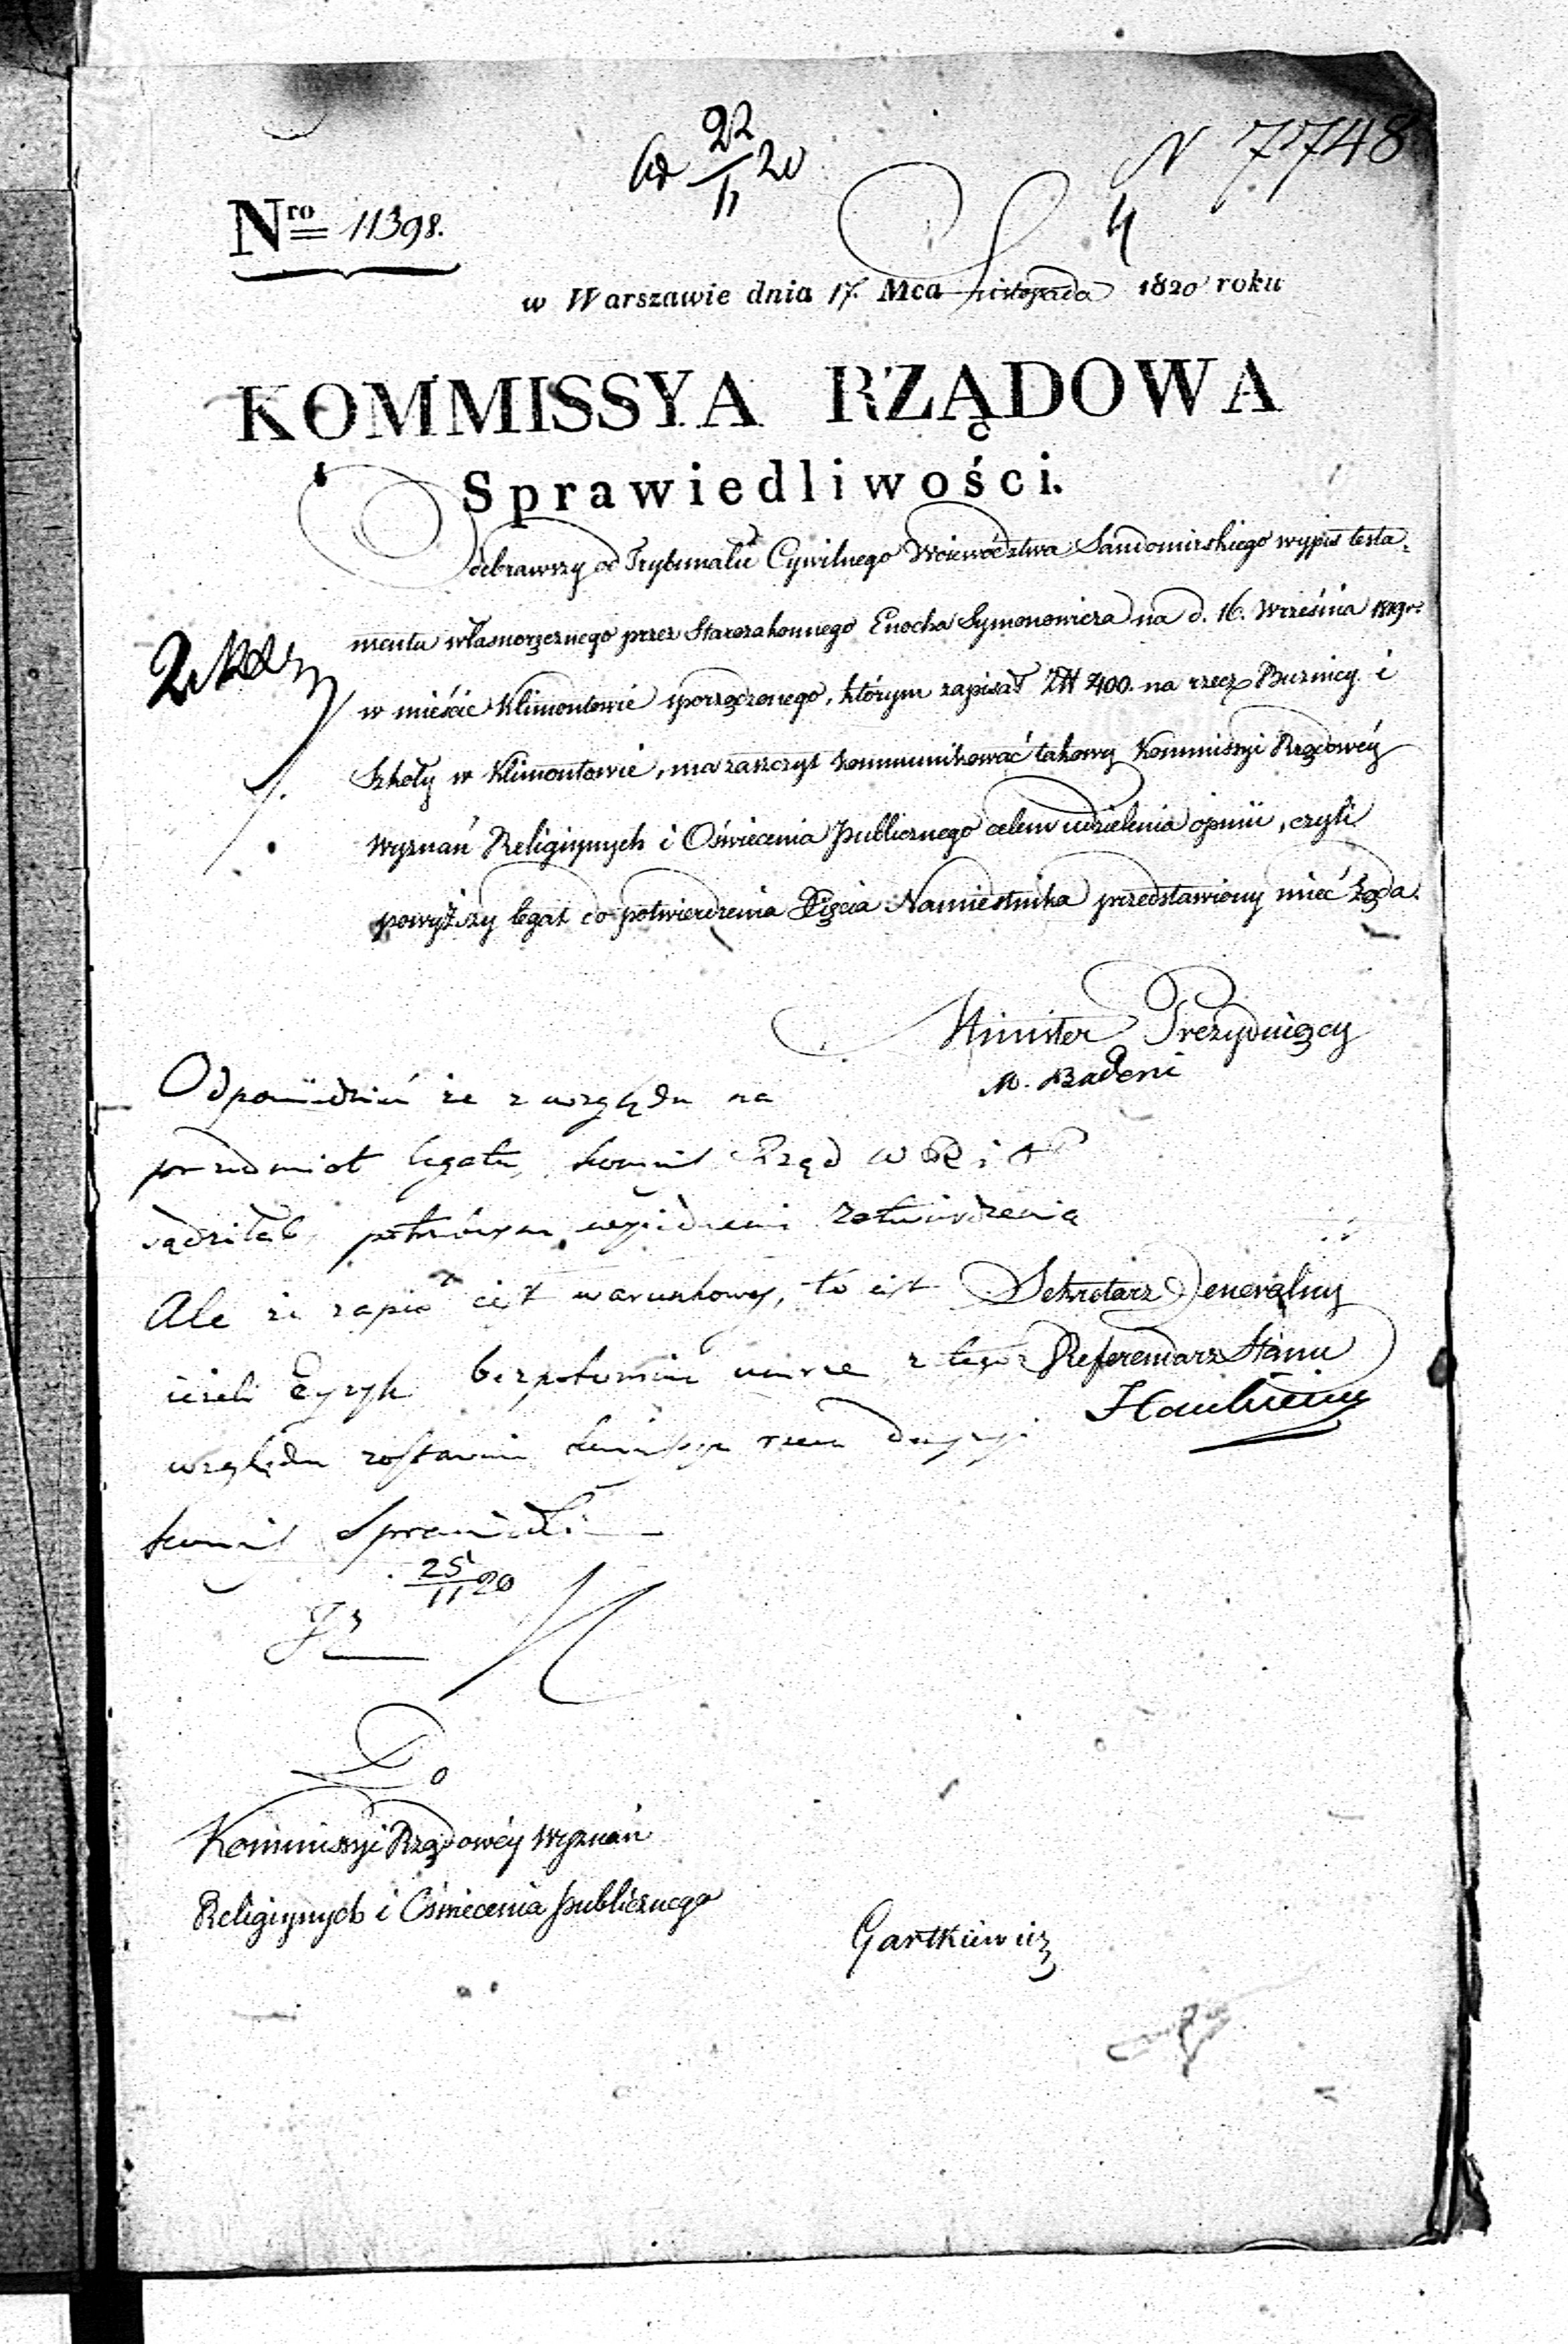 22/11 20
N 7748
4
Nro 11398.
w Warszawie dnia 17. Mca Listopada 1820 roku
KOMMISSYA RZĄDOWA
Sprawiedliwości.
Odebrawszy od Trybunału Cywilnego Woiewództwa Sandomirskiego wypis testa-
mentu własnoręcznego przez Starozakonnego Enocha Symonowicza na d. 16. Września 1819 r.
w mieście Klimontowie sporządzonego, którym zapisał Zł 400. na rzecz Buźnicy i
Szkoły w Klimontowie, ma zaszczyt kommunikować takowy Kommissyi Rządowéy
Wyznań Religiynych i Oświecenia Publicznego celem udzielenia opinii, czyli
powyższy legat do potwierdzenia Xięcia Namiestnika przedstawiony mieć żąda.
Minister Prezyduiący
M. Badeni
Odpowiedzieć że z względu na
przedmiot legatu, kommis Rząd W R i O P
sądziłab potwierdzenia
Ale że zapis iest warunkowy, to iest
ieżeli Eyzyk bezpotomnie umrze, z tego
względu zostawia
Kommis Sprawiedli
25/11 20
Sekretarz Jeneralny
Referendarz Stanu
Hankiewicz
Do
Kommissyi Rządowéy Wyznań
Religiynych i Oświecenia Publicznego
Gartkiewicz